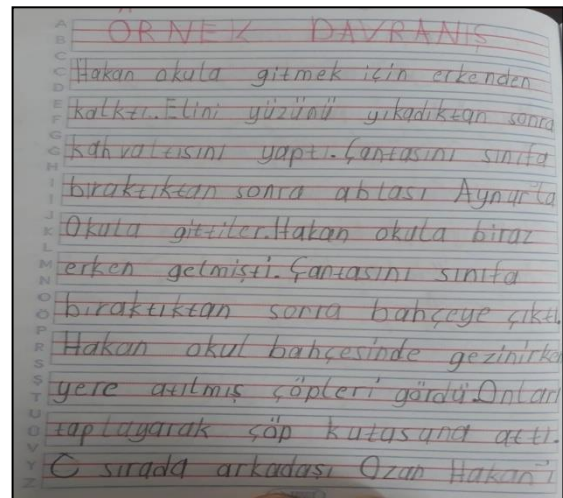 ÖRNEK DAVRANIŞ
Hakan okula gitmek için erkenden
kalktı. Elini yüzünü yıkadıktan sonra
kahvaltısını yaptı. Çantasını sınıfa
bıraktıktan sonra ablası Aynur'la
Okula gittiler. Hakan okula biraz
erken gelmişti. Çantasını sınıfa
bıraktıktan sonra bahçeye çıktı.
Hakan okul bahçesinde gezinirke
yere atılmış çöpleri gördü. Onları
toplayarak çöp kutusuna attı.
O sırada arkadaşı Ozan Hakan'ı